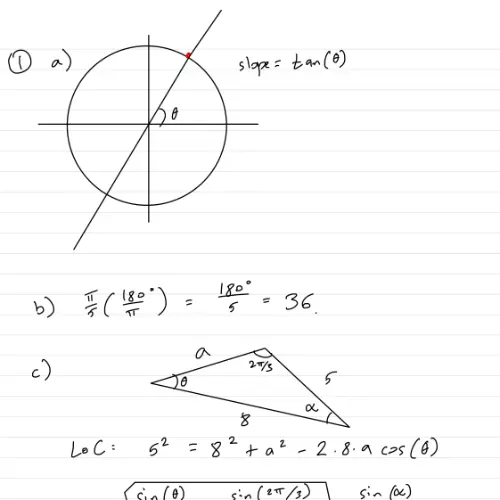 ① a) slope = tan(θ)
θ
b) π/5 (180°/π) = 180°/5 = 36.
c) a 2π/3 5
θ α
8
LoC: 5² = 8² + a² - 2·8·a cos(θ)
sin(θ) sin(2π/3) sin(α)